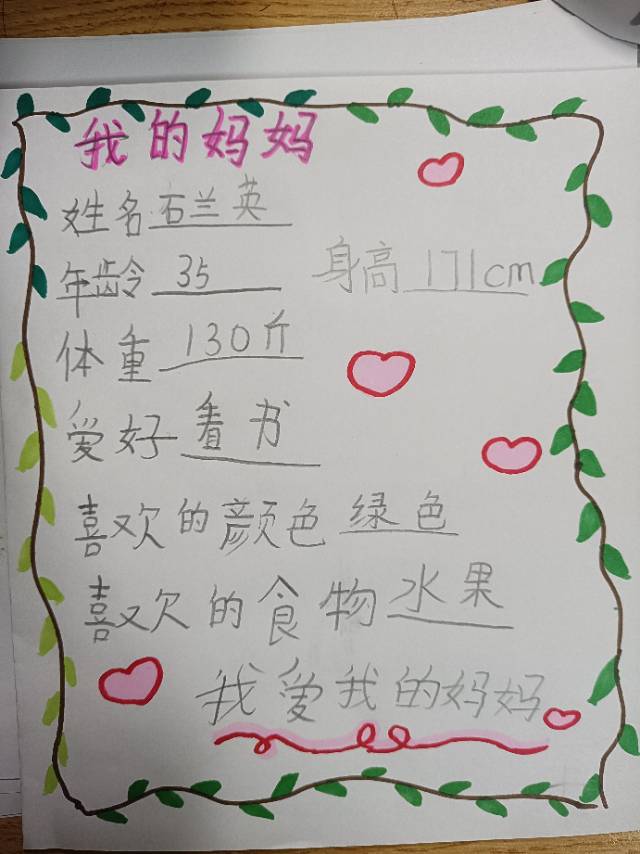 我的妈妈
姓名 石兰英
年龄 35 身高 171cm
体重 130斤
爱好 看书
喜欢的颜色 绿色
喜欢的食物 水果
我爱我的妈妈